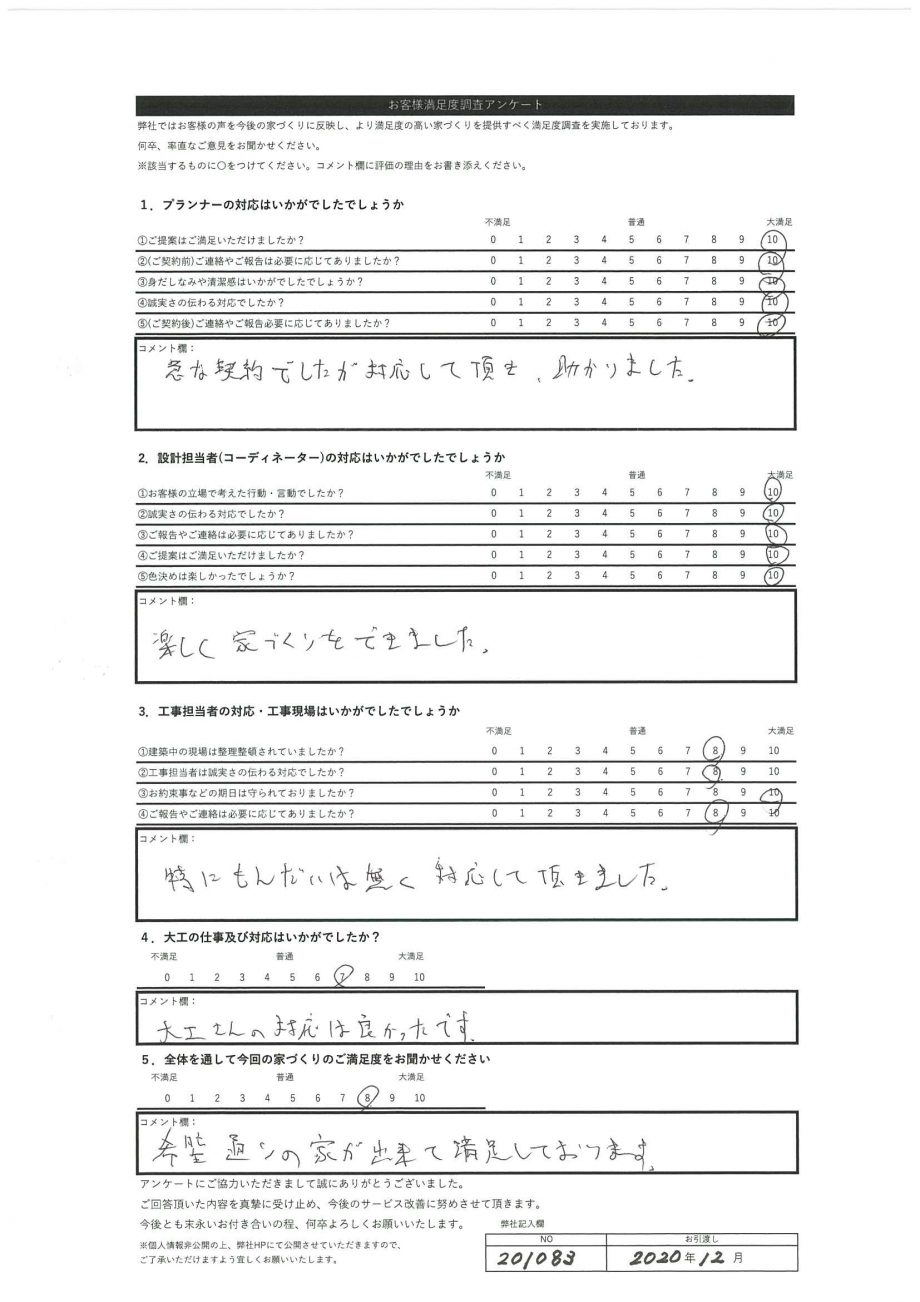 お客様満足度調査アンケート
弊社ではお客様の声を今後の家づくりに反映し、より満足度の高い家づくりを提供すべく満足度調査を実施しております。
何卒、率直なご意見をお聞かせください。
※該当するものに〇をつけてください。コメント欄に評価の理由をお書き添えください。
1．プランナーの対応はいかがでしたでしょうか
不満足 普通 大満足
①ご提案はご満足いただけましたか？ 0 1 2 3 4 5 6 7 8 9 10
②(ご契約前)ご連絡やご報告は必要に応じてありましたか？ 0 1 2 3 4 5 6 7 8 9 10
③身だしなみや清潔感はいかがでしたでしょうか？ 0 1 2 3 4 5 6 7 8 9 10
④誠実さの伝わる対応でしたか？ 0 1 2 3 4 5 6 7 8 9 10
⑤(ご契約後)ご連絡やご報告必要に応じてありましたか？ 0 1 2 3 4 5 6 7 8 9 10
コメント欄：
急な契約でしたが対応して頂き、助かりました。
2．設計担当者(コーディネーター)の対応はいかがでしたでしょうか
不満足 普通 大満足
①お客様の立場で考えた行動・言動でしたか？ 0 1 2 3 4 5 6 7 8 9 10
②誠実さの伝わる対応でしたか？ 0 1 2 3 4 5 6 7 8 9 10
③ご報告やご連絡は必要に応じてありましたか？ 0 1 2 3 4 5 6 7 8 9 10
④ご提案はご満足いただけましたか？ 0 1 2 3 4 5 6 7 8 9 10
⑤色決めは楽しかったでしょうか？ 0 1 2 3 4 5 6 7 8 9 10
コメント欄：
楽しく家づくりをできました。
3．工事担当者の対応・工事現場はいかがでしたでしょうか
不満足 普通 大満足
①建築中の現場は整理整頓されていましたか？ 0 1 2 3 4 5 6 7 8 9 10
②工事担当者は誠実さの伝わる対応でしたか？ 0 1 2 3 4 5 6 7 8 9 10
③お約束事などの期日は守られておりましたか？ 0 1 2 3 4 5 6 7 8 9 10
④ご報告やご連絡は必要に応じてありましたか？ 0 1 2 3 4 5 6 7 8 9 10
コメント欄：
特にもんだいは無く対応して頂きました。
4．大工の仕事及び対応はいかがでしたか？
不満足 普通 大満足
0 1 2 3 4 5 6 7 8 9 10
コメント欄：
大工さんの対応は良かったです。
5．全体を通して今回の家づくりのご満足度をお聞かせください
不満足 普通 大満足
0 1 2 3 4 5 6 7 8 9 10
コメント欄：
希望通りの家が出来て満足しております。
アンケートにご協力いただきまして誠にありがとうございました。
ご回答頂いた内容を真摯に受け止め、今後のサービス改善に努めさせて頂きます。
今後とも末永いお付き合いの程、何卒よろしくお願いいたします。
※個人情報非公開の上、弊社HPにて公開させていただきますので、
ご了承いただけますよう宜しくお願いいたします。
弊社記入欄
NO お引渡し
201083 2020年12月